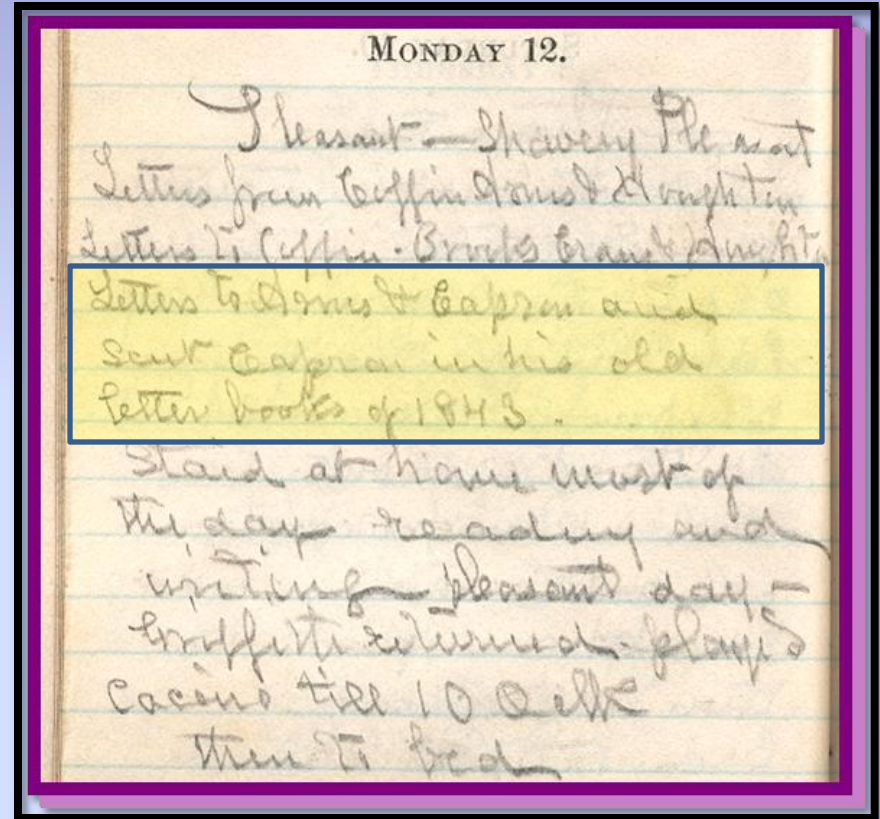 MONDAY 12.
Pleasant — Showery Pleasant
Letters from Coffin Arms & Houghton
Letters to Coffin - Brooks & Houghton
Letters to Arms & Capron and
Sent Capron in his old
letter books of 1843.
Staid at home most of
the day reading and
writing pleasant day -
Griffith returned. played
till 10 Oclk
then to bed